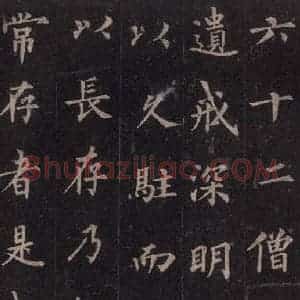 六十二僧
遺戒深明
以久駐而
以長存乃
常存者是
Shufaziliao.COM